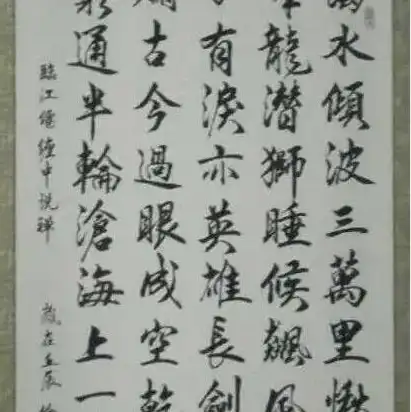 水傾波三萬里愀
龍潛獅睡候飆風
有淚亦英雄長劍
古今過眼成空乾
通半輪滄海上一
臨江僊纏中说禅 歲在壬辰